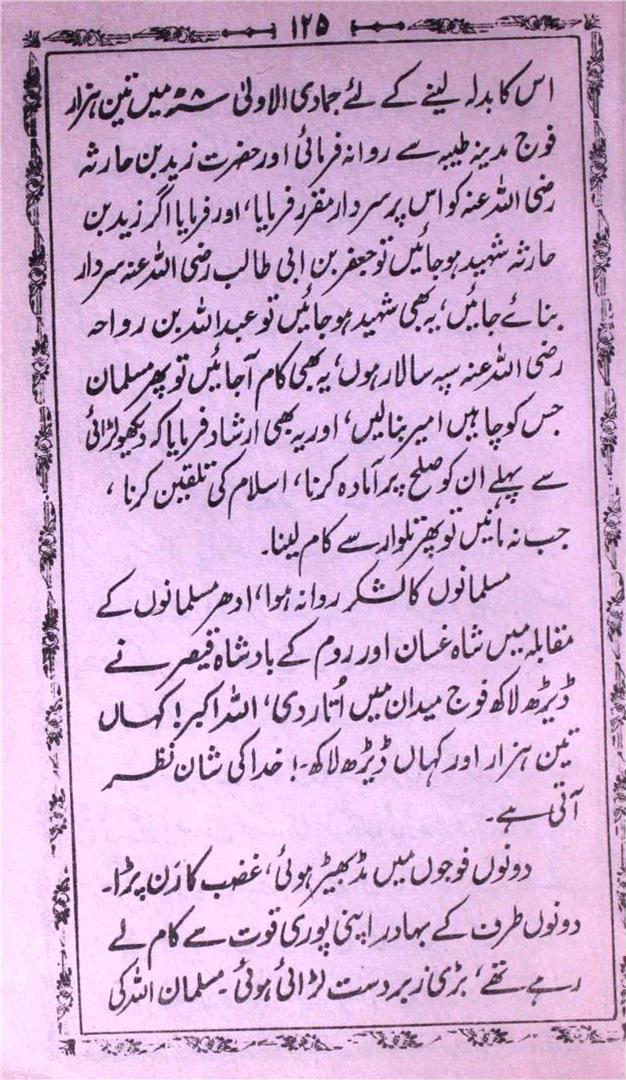 ۱۲۵
اس کا بدلہ لینے کے لئے جمادی الاولیٰ ۸ھ میں تین ہزار
فوج مدینہ طیبہ سے روانہ فرمائی اور حضرت زید بن حارثہ
رضی اللہ عنہ کو اس پر سردار مقرر فرمایا، اور فرمایا اگر زید بن
حارثہ شہید ہوجائیں تو جعفر بن ابی طالب رضی اللہ عنہ سردار
بنائے جائیں، یہ بھی شہید ہوجائیں تو عبداللہ بن رواحہ
رضی اللہ عنہ سپہ سالار ہوں، یہ بھی کام آجائیں تو پھر مسلمان
جس کو چاہیں امیر بنالیں، اور یہ بھی ارشاد فرمایا کہ دیکھو لڑائی
سے پہلے ان کو صلح پر آمادہ کرنا، اسلام کی تلقین کرنا،
جب نہ مانیں تو پھر تلوار سے کام لینا۔
مسلمانوں کا لشکر روانہ ہوا، ادھر مسلمانوں کے
مقابلہ میں شاہ غسان اور روم کے بادشاہ قیصر نے
ڈیڑھ لاکھ فوج میدان میں اُتار دی، اللہ اکبر! کہاں
تین ہزار اور کہاں ڈیڑھ لاکھ۔! خدا کی شان نظر
آتی ہے۔
دونوں فوجوں میں مڈبھیڑ ہوئی، غضب کا رَن پڑا۔
دونوں طرف کے بہادر اپنی پوری قوت سے کام لے
رہے تھے، بڑی زبردست لڑائی ہوئی۔ مسلمان اللہ کی